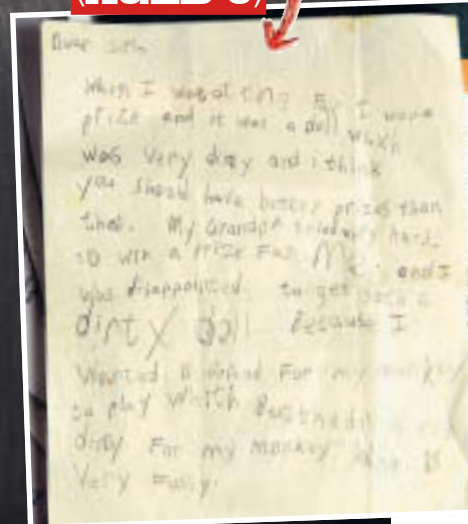 (AGED 6)
Dear Sir,
When I was at the I won a
prize and it was a doll which
was very dirty and i think
you should have better prizes than
that. My Grandpa very hard
to win a prize For Me and I
was disappointed to get such a
dirty doll Because I
Wanted a friend For my monkey
to play with But the doll
dirty For my monkey who is
Very Fussy.